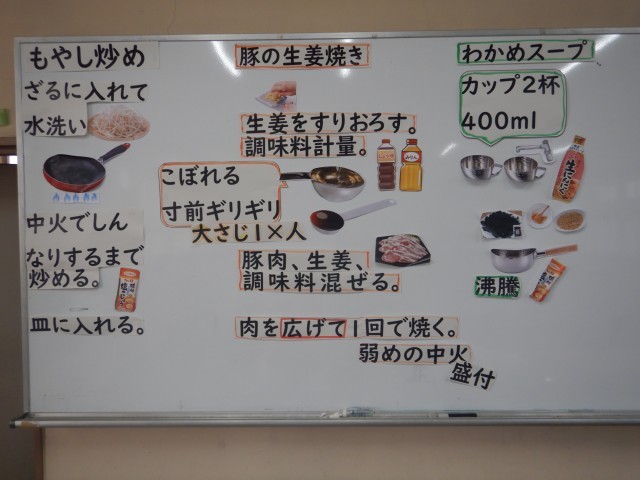 もやし炒め
ざるに入れて
水洗い
中火でしん
なりするまで
炒める。
皿に入れる。
豚の生姜焼き
生姜をすりおろす。
調味料計量。
みりん
こぼれる
寸前ギリギリ
大さじ1×人
豚肉、生姜、
調味料混ぜる。
肉を広げて1回で焼く。
弱めの中火
盛付
わかめスープ
カップ2杯
400ml
沸騰